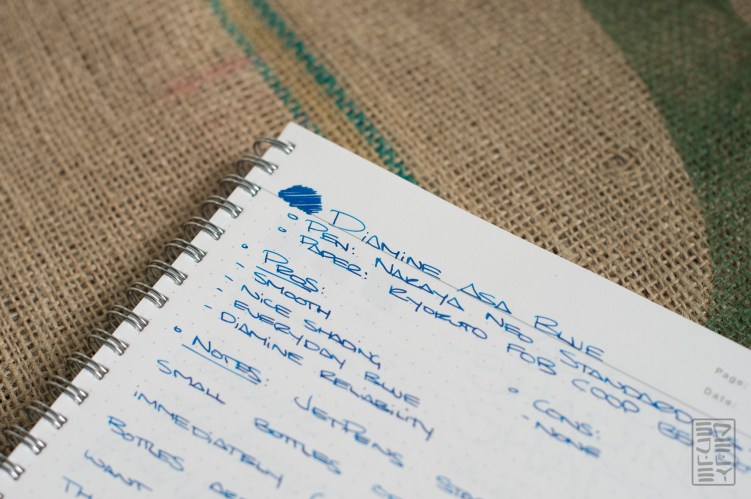 DIAMINE ASA BLUE
PEN: NAKAYA NEO STANDARD
PAPER: KYOKUTO FOB COOP
PROS:
- SMOOTH
- NICE SHADING
- EVERYDAY BLUE
- DIAMINE RELIABILITY
CONS:
- NONE
NOTES: JETPENS
SMALL BOTTLES
IMMEDIATELY
BOTTLES
WANT
Page:
Date: